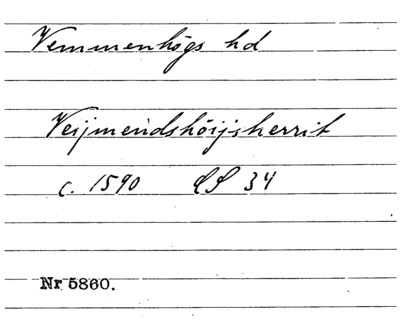 Vemmenhögs hd
Veijmendshöijsherrit
c. 1590 LS 34
Nr 5860.